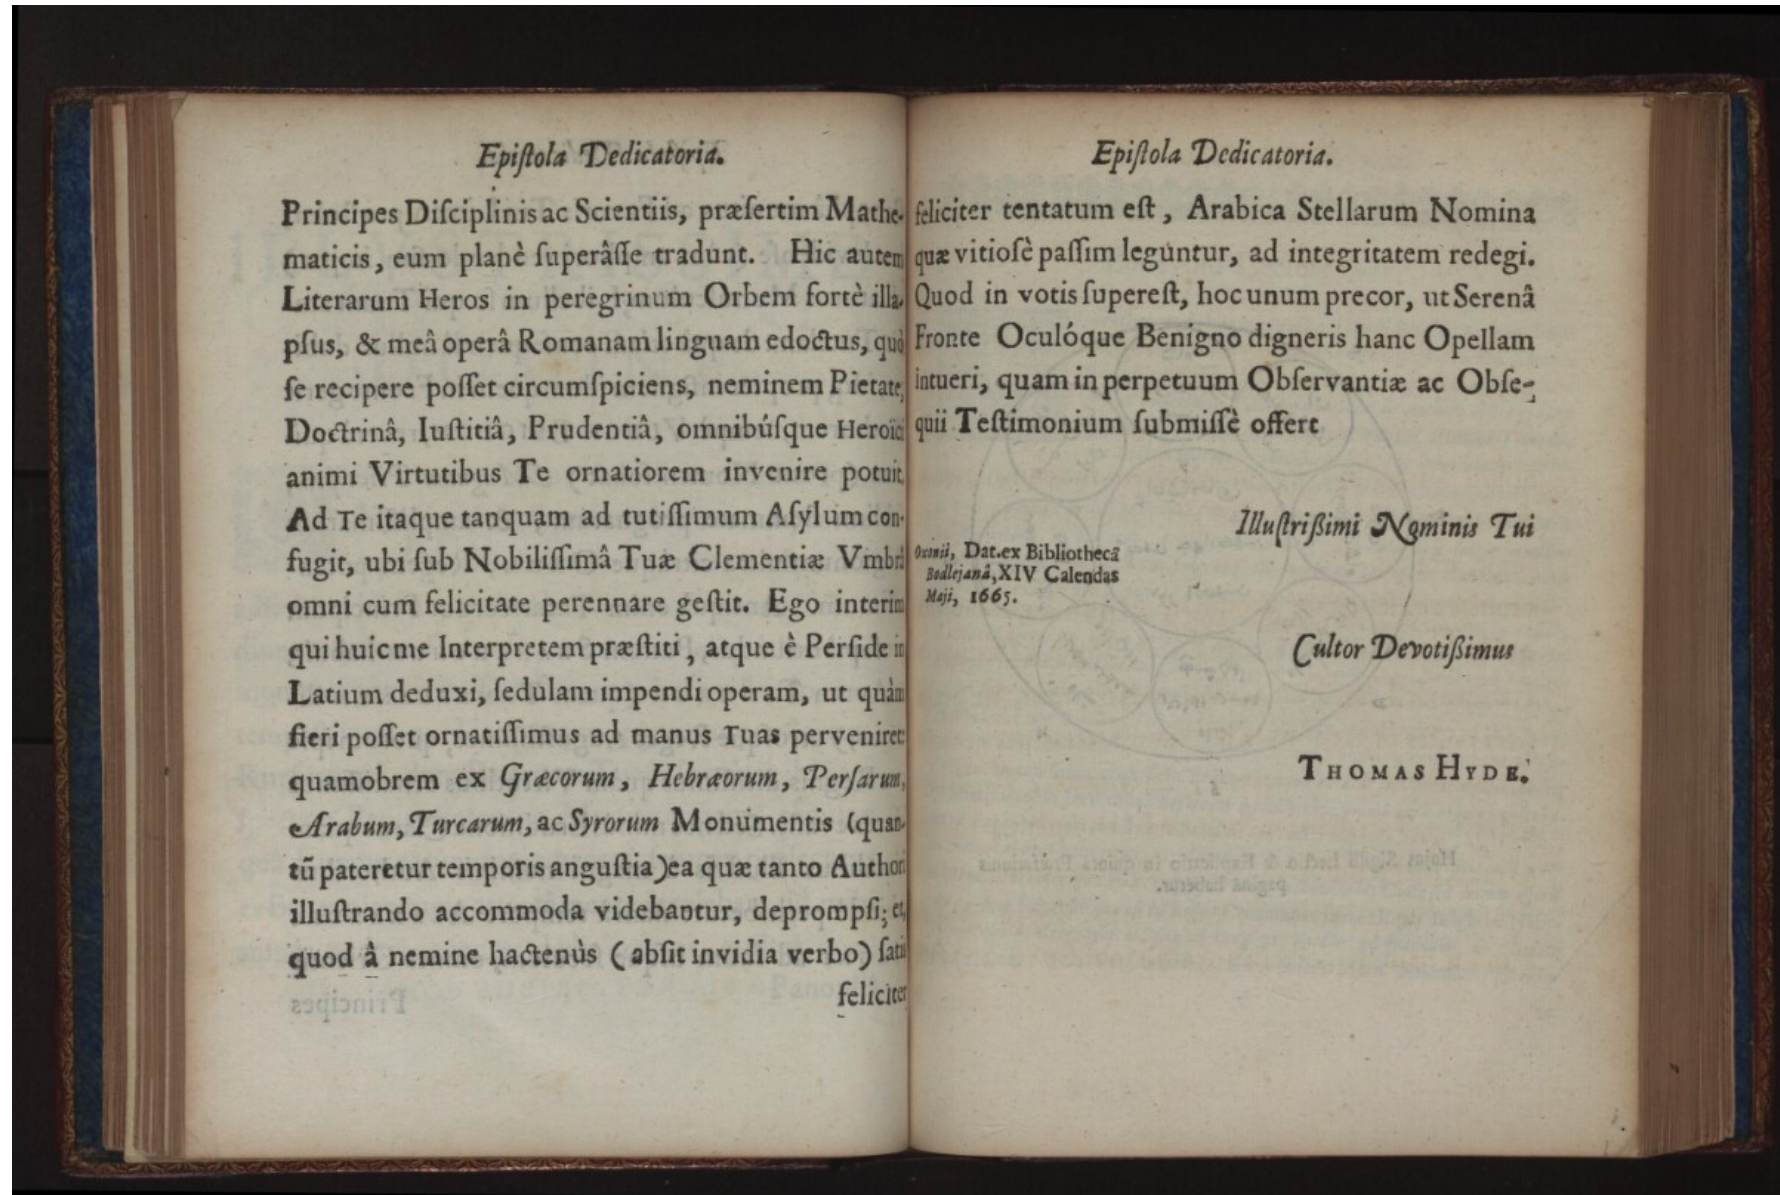 Epiſtola Dedicatoria.
Principes Diſciplinis ac Scientiis, præſertim Mathe-
maticis, eum planè ſuperâſſe tradunt. Hic autem
Literarum Heros in peregrinum Orbem fortè illa-
pſus, & meâ operâ Romanam linguam edoctus, quò
ſe recipere poſſet circumſpiciens, neminem Pietate,
Doctrinâ, Iuſtitiâ, Prudentiâ, omnibúſque Heroici
animi Virtutibus Te ornatiorem invenire potuit.
Ad Te itaque tanquam ad tutiſſimum Aſylum con-
fugit, ubi ſub Nobiliſſimâ Tuæ Clementiæ Vmbrâ
omni cum felicitate perennare geſtit. Ego interim
qui huic me Interpretem præſtiti, atque è Perſide in
Latium deduxi, ſedulam impendi operam, ut quàm
fieri poſſet ornatiſſimus ad manus Tuas perveniret:
quamobrem ex Græcorum, Hebræorum, Perſarum,
Arabum, Turcarum, ac Syrorum Monumentis (quan-
tũ pateretur temporis anguſtia) ea quæ tanto Authori
illuſtrando accommoda videbantur, deprompſi; et,
quod â nemine hactenùs (abſit invidia verbo) ſatis
feliciter
Epiſtola Dedicatoria.
feliciter tentatum eſt, Arabica Stellarum Nomina
quæ vitioſè paſſim leguntur, ad integritatem redegi.
Quod in votis ſupereſt, hoc unum precor, ut Serenâ
Fronte Oculóque Benigno digneris hanc Opellam
intueri, quam in perpetuum Obſervantiæ ac Obſe-
quii Teſtimonium ſubmiſſè offert
Illuſtrißimi Nominis Tui
Oxonii, Dat. ex Bibliothecâ
Bodlejanâ, XIV Calendas
Maji, 1665.
Cultor Devotißimus
THOMAS HYDE.